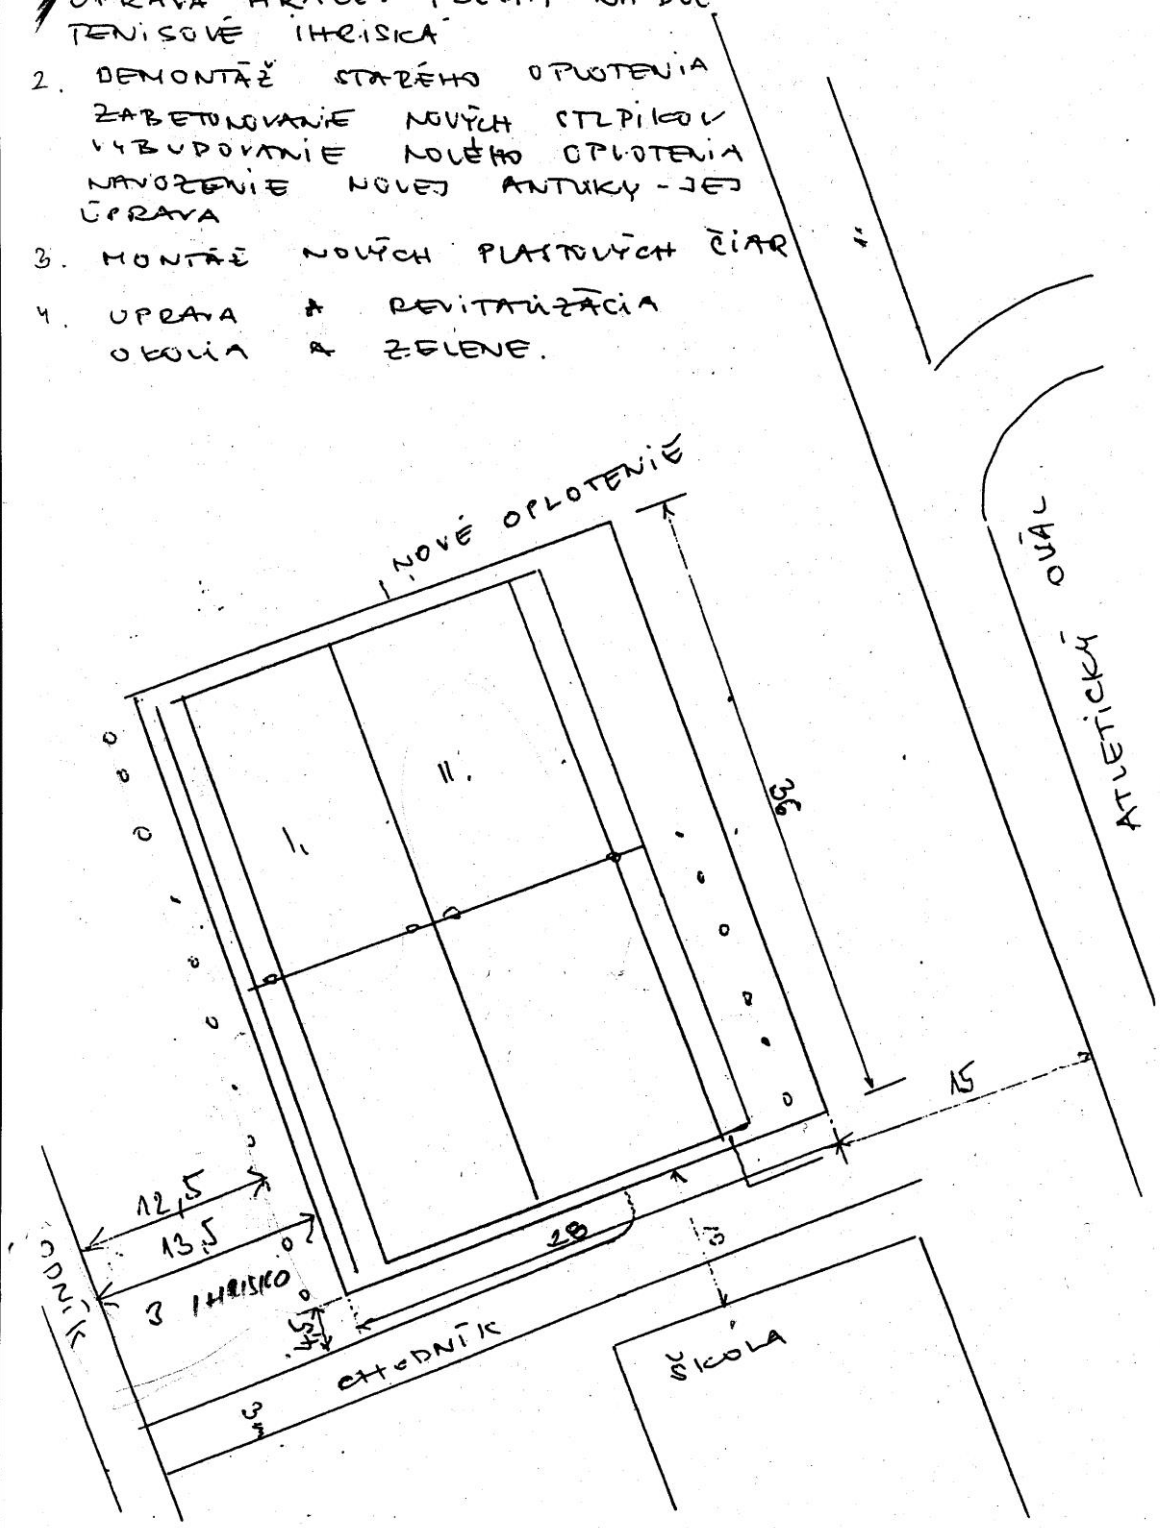 ÚPRAVA HRACEJ PLOCHY NA DVE
TENISOVÉ IHRISKÁ
2. DEMONTÁŽ STARÉHO OPLOTENIA
ZABETONOVANIE NOVÝCH STLPIKOV
VYBUDOVANIE NOVÉHO OPLOTENIA
NAVOZENIE NOVEJ ANTUKY - JEJ
ÚPRAVA
3. MONTÁŽ NOVÝCH PLASTOVÝCH ČIAR
4. UPRAVA A REVITALIZÁCIA
OKOLIA A ZELENE.
NOVÉ OPLOTENIE
ATLETICKÝ OVÁL
I.
II.
36
15
12,5
13,5
3 IHRISKO
28
CHODNÍK
3m
ŠKOLA
ODNÍK